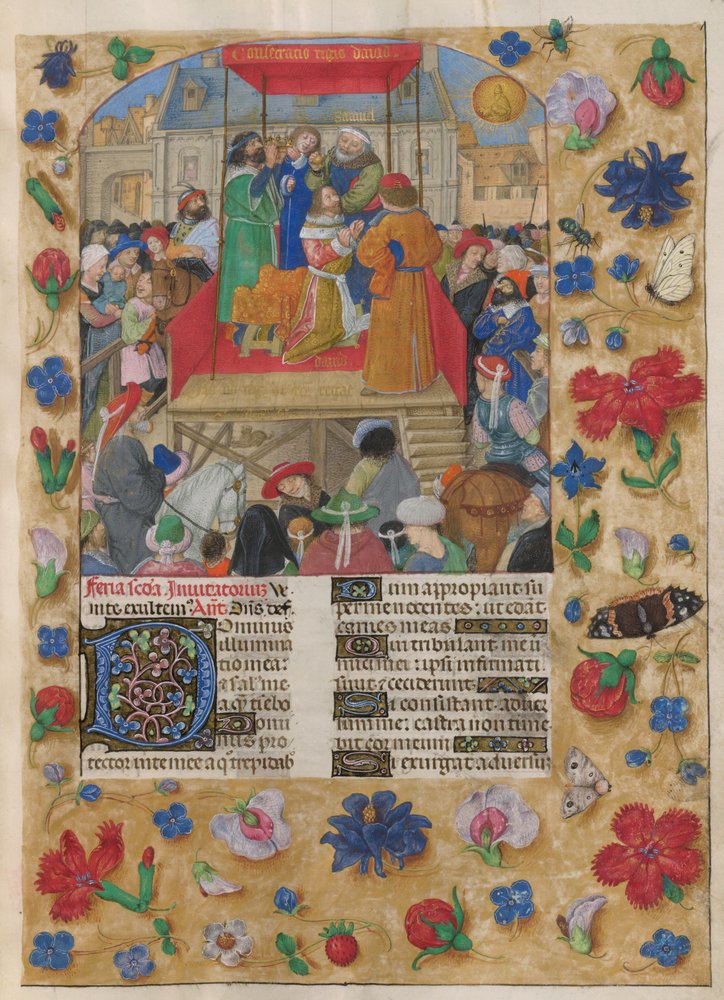 Consecratio regis david
Samuel
david
Feria scda Invitatoriũ Ve
nite exultem⁹ Añt Dñs def.
Dominus
illumina
tio mea:
et sal⁹ me
a q̃ tiebo
Domi
nus pro
tector vite mee a q̃ trepidab
Dum appropiant su
per me nocentes: ut edãt
carnes meas
Qui tribulant me i
nimici mei: ipsi infirmati
sunt ⁊ ceciderunt
Si consistant adver
sum me: castra non time
bit cor meum
Si exurgat adversuz